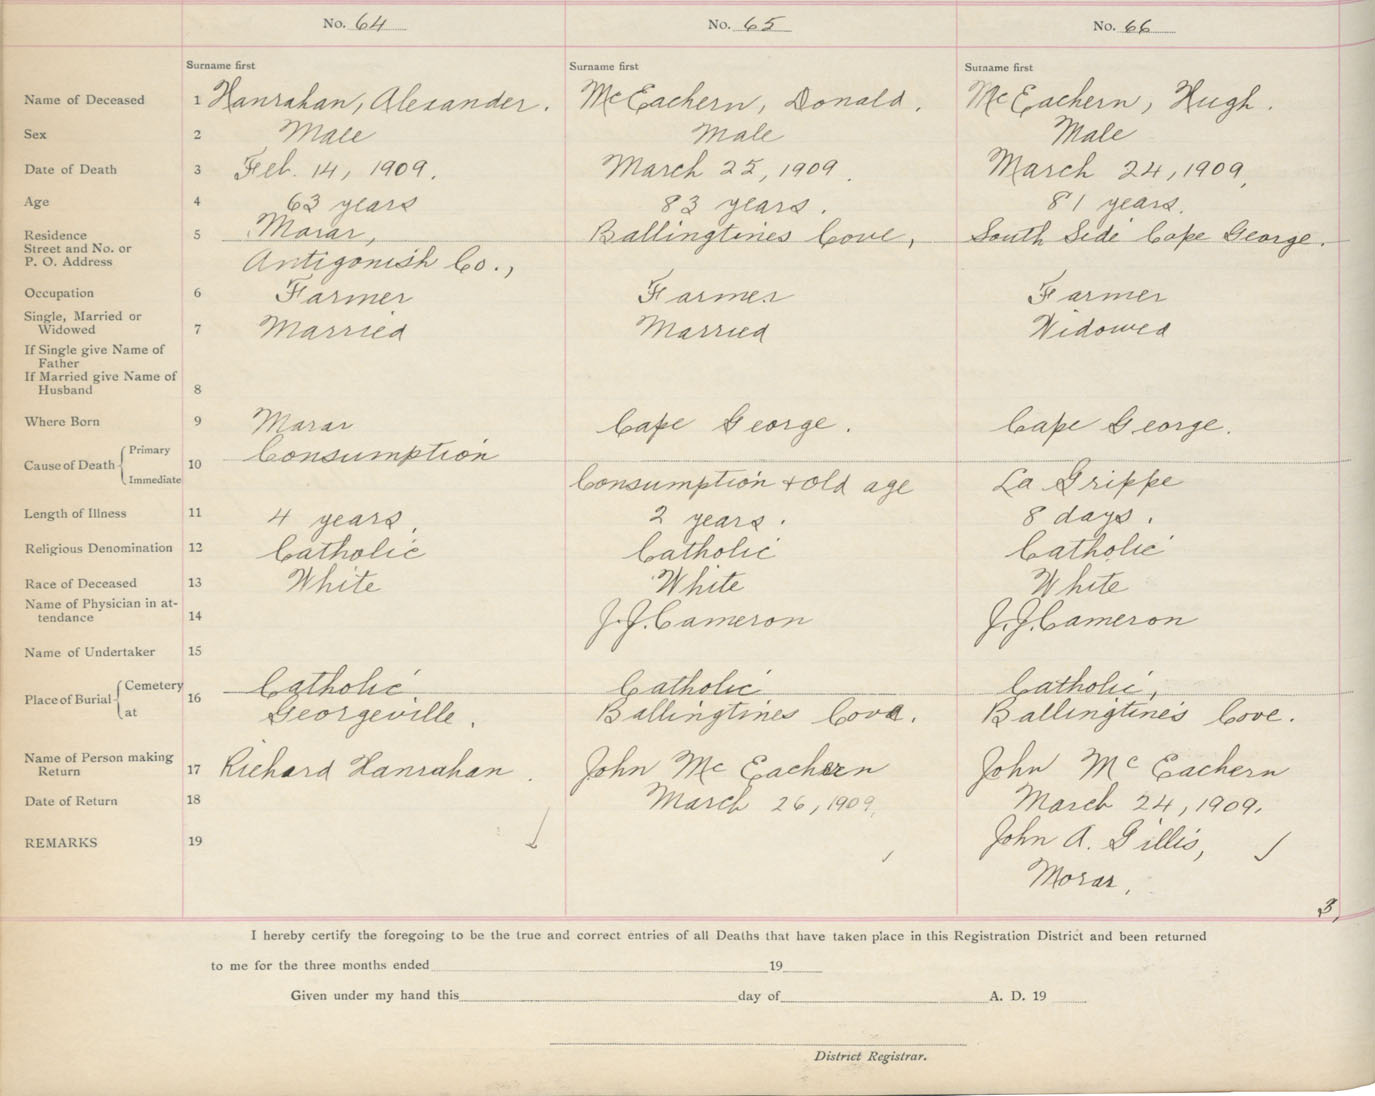 No. 64 No. 65 No. 66
Surname first Surname first Surname first
Name of Deceased 1 Hanrahan, Alexander. McEachern, Donald. McEachern, Hugh.
Sex 2 Male Male Male
Date of Death 3 Feb. 14, 1909. March 25, 1909. March 24, 1909.
Age 4 63 years 83 years. 81 years.
Residence 5 Morar, Ballingtines Cove, South Side Cape George.
Street and No. or
P. O. Address Antigonish Co.,
Occupation 6 Farmer Farmer Farmer
Single, Married or
Widowed 7 Married Married Widowed
If Single give Name of
Father
If Married give Name of
Husband 8
Where Born 9 Morar Cape George. Cape George.
Cause of Death Primary 10 Consumption
Immediate Consumption + old age La Grippe
Length of Illness 11 4 years. 2 years. 8 days.
Religious Denomination 12 Catholic Catholic Catholic
Race of Deceased 13 White White White
Name of Physician in at-
tendance 14 J. J. Cameron J. J. Cameron
Name of Undertaker 15
Place of Burial Cemetery 16 Catholic Catholic Catholic,
at Georgeville. Ballingtines Cove. Ballingtines Cove.
Name of Person making
Return 17 Richard Hanrahan. John McEachern John McEachern
Date of Return 18 March 26, 1909. March 24, 1909.
REMARKS 19 John A. Gillis,
Morar,
3,
I hereby certify the foregoing to be the true and correct entries of all Deaths that have taken place in this Registration District and been returned
to me for the three months ended 19
Given under my hand this day of A. D. 19
District Registrar.